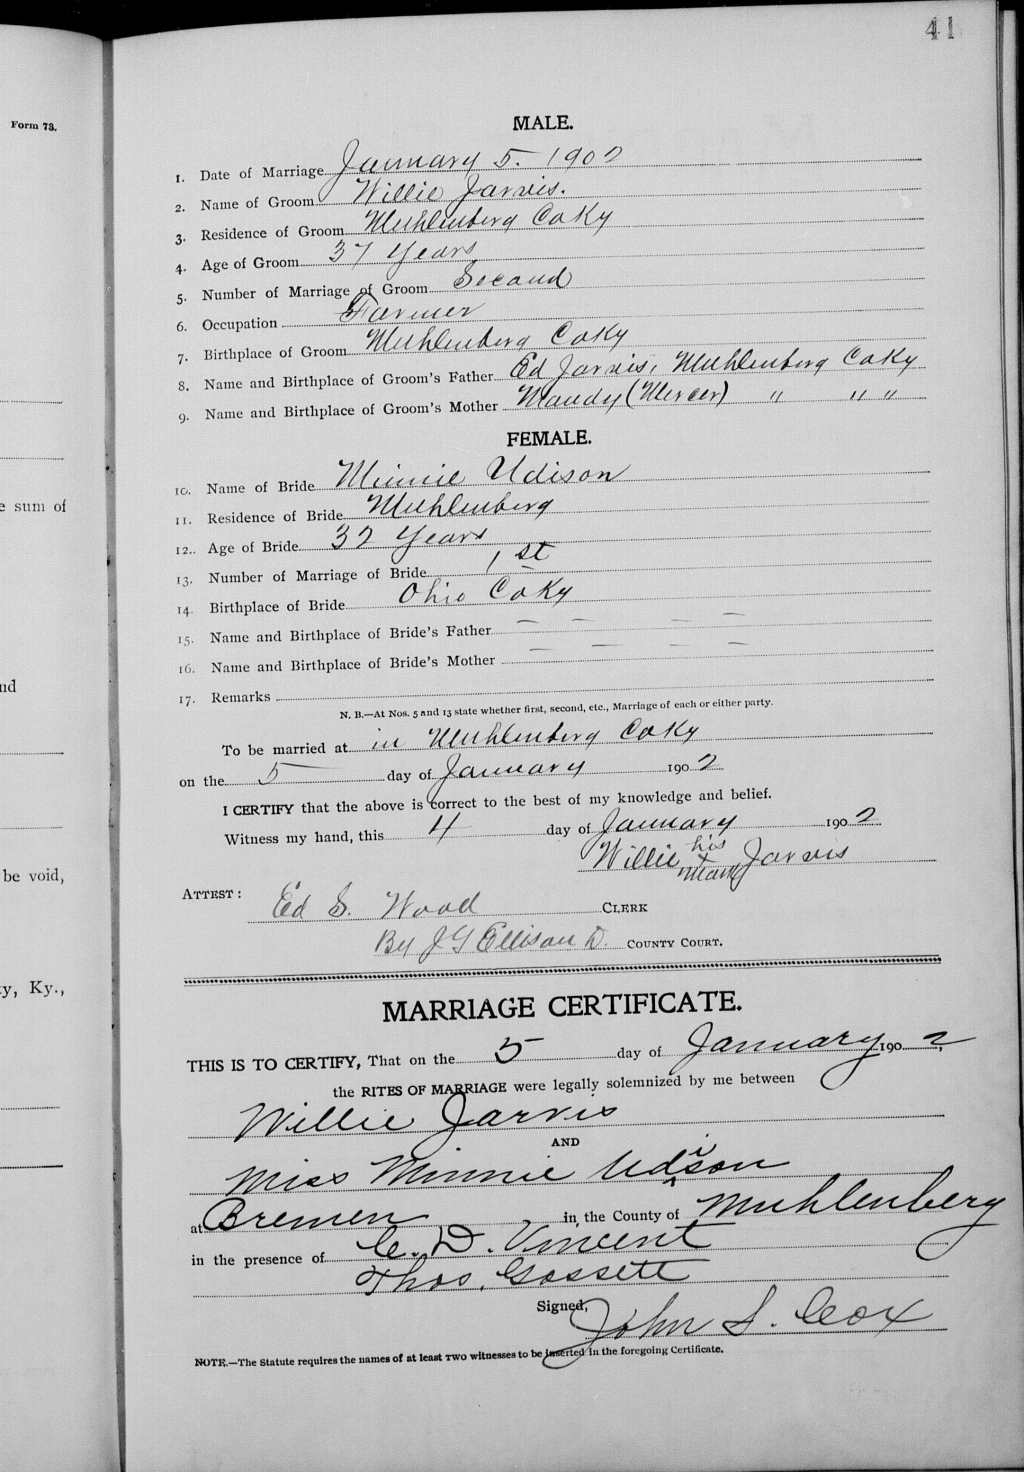 41
Form 73.
MALE.
1. Date of Marriage January 5. 1902
2. Name of Groom Willie Jarvis.
3. Residence of Groom Muhlenberg CoKy
4. Age of Groom 37 Years
5. Number of Marriage of Groom Second
6. Occupation Farmer
7. Birthplace of Groom Muhlenberg CoKy
8. Name and Birthplace of Groom's Father Ed Jarvis, Muhlenberg CoKy
9. Name and Birthplace of Groom's Mother Mandy (Mercer) " " "
FEMALE.
10. Name of Bride Minnie Udison
11. Residence of Bride Muhlenberg
12. Age of Bride 32 Years
13. Number of Marriage of Bride 1st
14. Birthplace of Bride Ohio CoKy
15. Name and Birthplace of Bride's Father — — — —
16. Name and Birthplace of Bride's Mother — — — —
17. Remarks
N. B.—At Nos. 5 and 13 state whether first, second, etc., Marriage of each or either party.
To be married at in Muhlenberg CoKy
on the 5 day of January 1902
I CERTIFY that the above is correct to the best of my knowledge and belief.
Witness my hand, this 4 day of January 1902
Willie his x mark Jarvis
ATTEST: Ed S. Wood CLERK
By J G Ellison D. COUNTY COURT.
MARRIAGE CERTIFICATE.
THIS IS TO CERTIFY, That on the 5 day of January 1902,
the RITES OF MARRIAGE were legally solemnized by me between
Willie Jarvis
AND
Miss Minnie Udison
at Bremen in the County of Muhlenberg
in the presence of C. D. Vincent
Thos. Gossett
Signed, John S. Cox
NOTE.—The Statute requires the names of at least TWO witnesses to be inserted in the foregoing Certificate.
e sum of
nd
be void,
ty, Ky.,